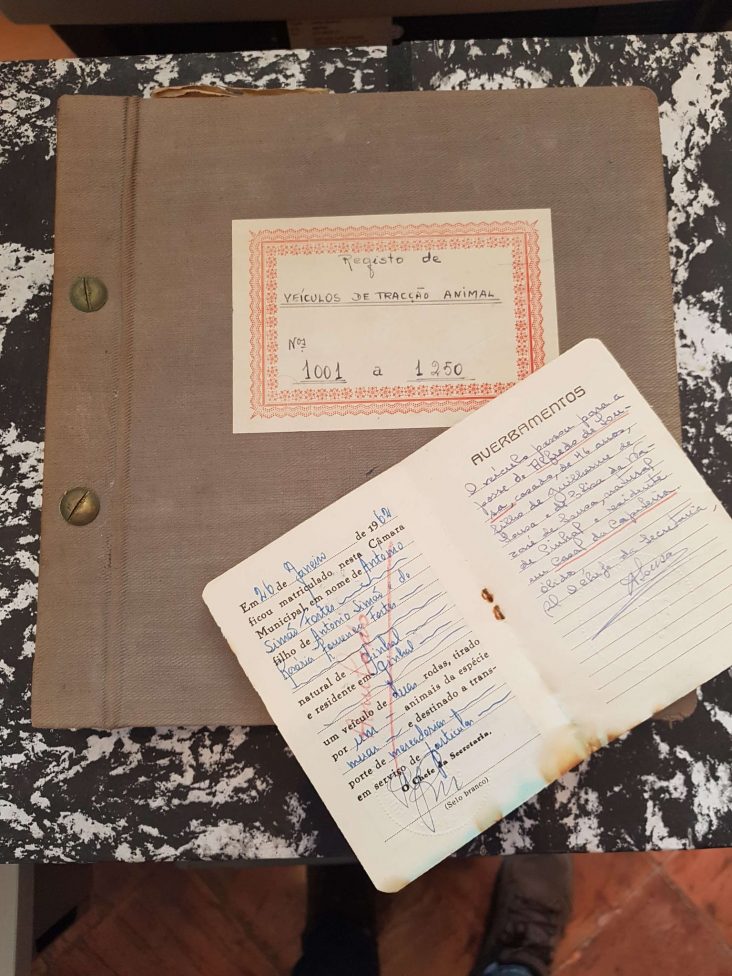 Registo de
VEÍCULOS DE TRACÇÃO ANIMAL
Nos
1001 a 1250
Em 26 de Janeiro de 1962
ficou matriculado nesta Câmara
Municipal, em nome de Antonio
Simões Fortes
filho de Antonio Simões e de
Rosaria Fortes
natural de Pinhal
e residente em Pinhal
um veículo de duas rodas, tirado
por um animais da espécie
muar e destinado a trans-
porte de mercadorias
em serviço de particular
O Chefe da Secretaria,
(Selo branco)
AVERBAMENTOS
O veículo passou para a
posse de Alfredo de Sou-
sa, casado, de 46 anos,
filho de Guilherme de
Sousa e de Elisa de Na-
zaré de Sousa, natural
de Pinhal e residente
em Casal da
Óbidos
O Chefe da Secretaria,